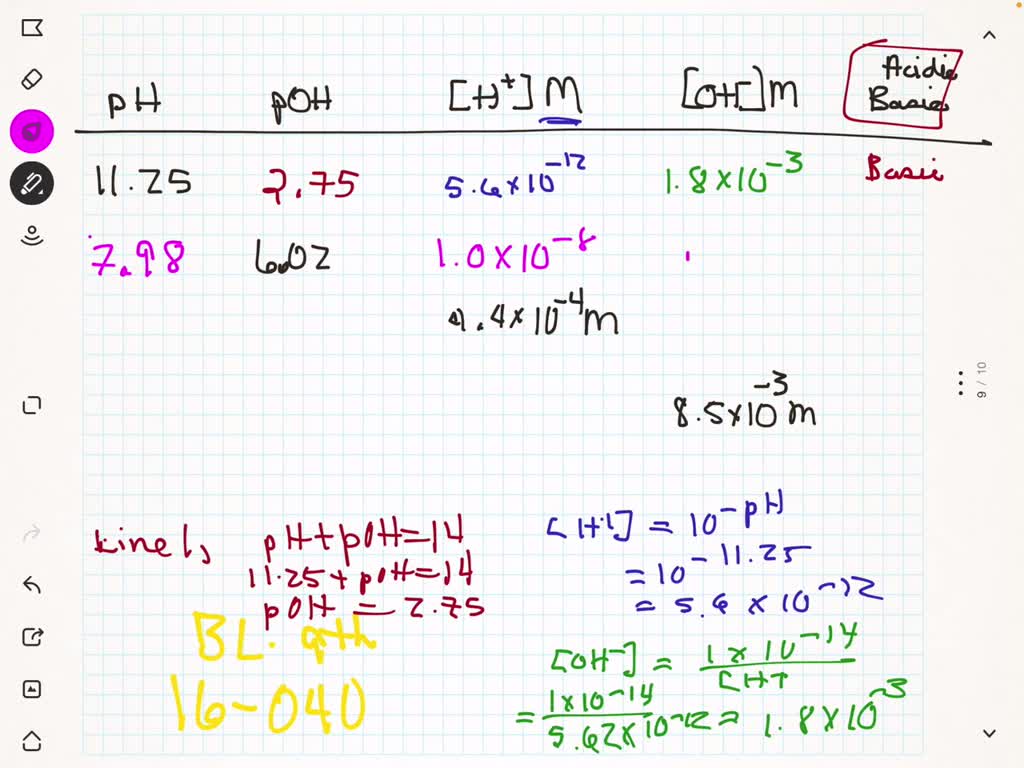 pH pOH [H⁺] M [OH⁻] m Acidic
Basic
11.25 2.75 5.6×10⁻¹² 1.8×10⁻³ Basic
7.98 6.02 1.0×10⁻⁸
4.4×10⁻⁴ m
8.5×10⁻³ m
Line 1, pH+pOH=14
11.25+pOH=14
pOH = 2.75
BL. 9th
16-040
[H+] = 10⁻ᵖᴴ
= 10⁻¹¹·²⁵
= 5.6 × 10⁻¹²
[OH⁻] = 1 × 10⁻¹⁴ / [H+
= 1×10⁻¹⁴ / 5.62×10⁻¹² = 1.8×10⁻³
9 / 10